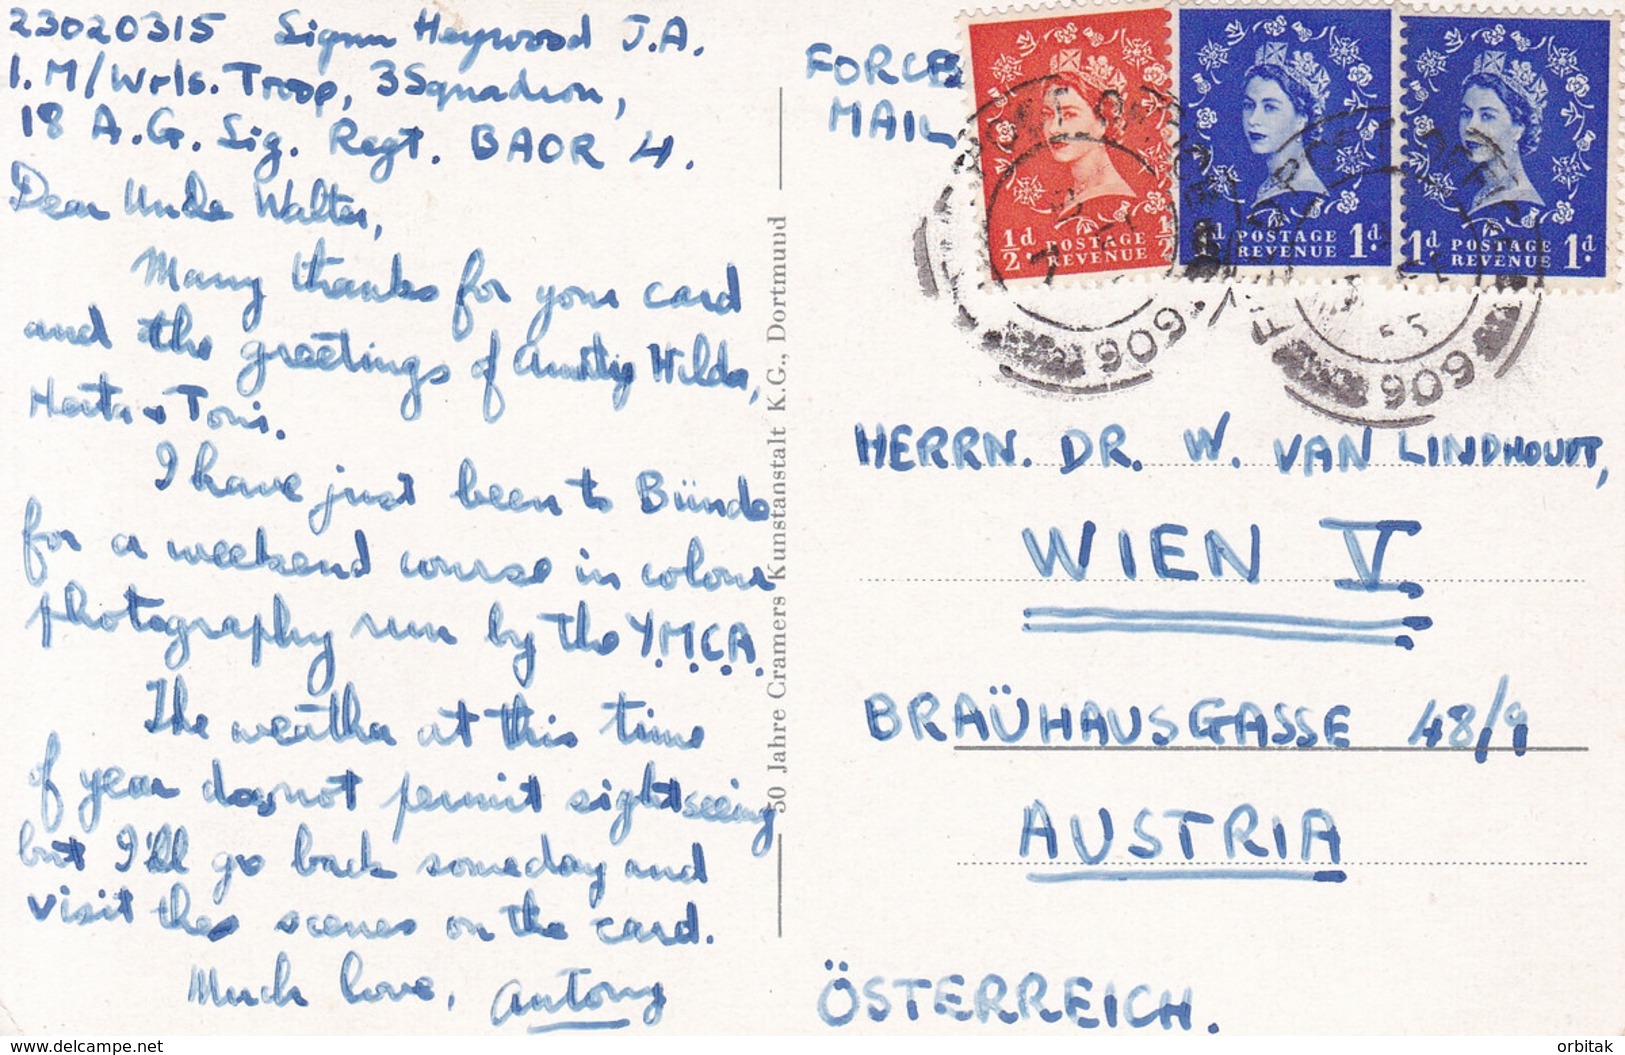 23020315 Signn Heywood J.A.
1. M/Wrls. Troop, 3 Squadron,
18 A.G. Sig. Regt. BAOR 4.
Dear Uncle Walter,
Many thanks for your card
and the greetings of Hilda,
Herta + Toni.
I have just been to Bünde
for a weekend course in colour
photography run by the Y.M.C.A.
The weather at this time
of year does not permit sightseeing
but I'll go back someday and
visit the scenes on the card.
Much love, Antony
50 Jahre Cramers Kunstanstalt K.G., Dortmund
FORCES
MAIL
½d POSTAGE REVENUE ½
1d POSTAGE REVENUE 1d
1d POSTAGE REVENUE 1d
FIELD POST OFFICE
906
FIELD POST OFFICE
909
HERRN. DR. W. VAN LINDHOUDT,
WIEN V
BRAÜHAUSGASSE 48/9
AUSTRIA
ÖSTERREICH.
www.delcampe.net
orbitak